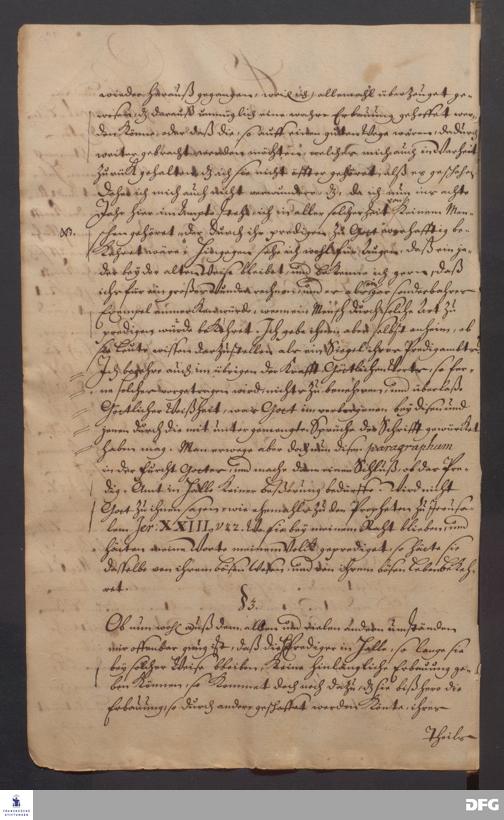 wieder herauß gegangen, weil ich allemahl überzeuget ge-
wesen, dz darauß unmüglich eine wahre Erbauung gehoffet wer-
den könne, oder daß die, so auff einem guten Wege wären, dadurch
weiter gebracht werden möchten, welches mich auch in Warheit
zurück gehalten dz ich sie nicht öffter gehöret, alß es geschehen
Daher ich mich auch nicht verwundere, dz, da ich nun ins achte
Jahr hier im Ampte stehe, ich in aller solcher Zeit noch keinem Men-
schen gehöret, der durch ihr predigen zu Gott rechtschafftig be-
kehret wäre. Hingegen sehe ich wohl für Augen, daß ein je-
der bey der alten Weise bleibet, und bekenne ich gern, daß
ichs für ein großes Wunder rechnen, und es als ein sonderbahres
Exempel anmercken würde, wenn ein Mensch durch solche Art zu
predigen würde bekehret. Ich gebe ihnen aber selbst anheim, ob
sie Leute wissen darzustellen als ein Siegel ihres Predigamtes.
Ich begehre auch im übrigen der Krafft Göttlichen Wortes, so fer-
ne solches vorgetragen wird, nichts zu benehmen, und überlaße
Göttlicher Weißheit, was Gott im verborgenen bey diesen und
jenen durch die mit unter gemengte Sprüche der Schrifft gewürcket
haben mag. Man erwege aber doch nun diesen paragraphum
in der Furcht Gottes, und mache dann einen Schluß, ob das Pre-
dig-Amt in Halle keiner beßerung bedürffe. Wird nicht
Gott zu ihnen sagen, wie ehemahls zu den Propheten zu Jerusa-
lem Jer: XXIII, v 22. Wo sie bey meinem Raht blieben, und
hätten meine Worte meinem Volck geprediget, so hätte sie
dasselbe von ihrem bösen Wesen, und von ihrem bösen Leben bekeh-
ret.
§ 3.
Ob nun wohl auß dem allen und vielen andern umständen
mir offenbar gnug ist, daß die Prediger in Halle, so lange sie
bey solcher Weise bleiben, keine hinlängliche Erbauung ge-
ben können, so kommet doch noch dazu, dz sie bißhero die
Erbauung, so durch andere geschaffet werden könte, ihres
Theils
FRANCKESCHE
STIFTUNGEN
DFG